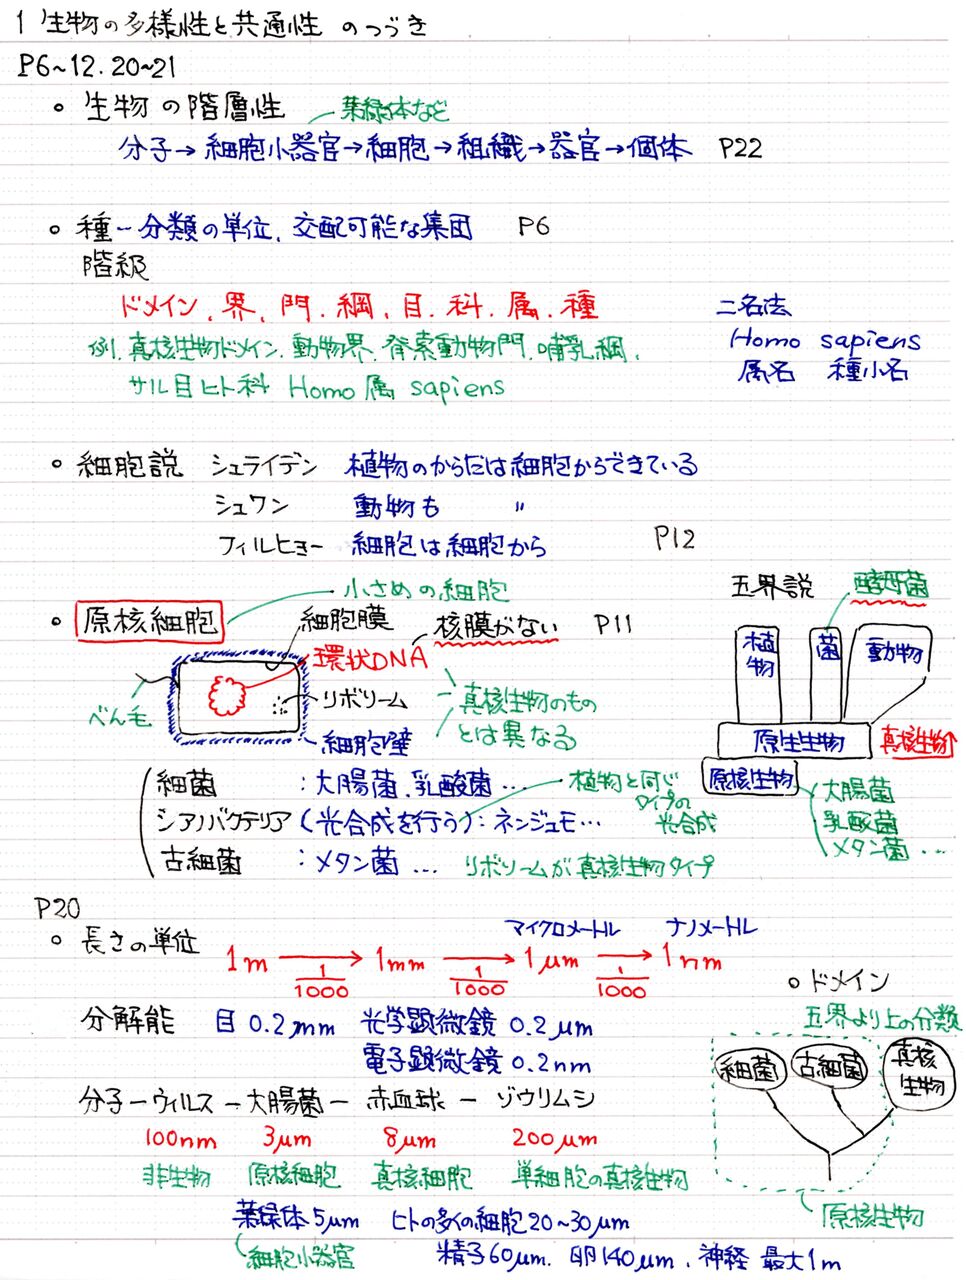 1 生物の多様性と共通性 のつづき
P6~12. 20~21
○ 生物の階層性 葉緑体など
分子→細胞小器官→細胞→組織→器官→個体 P22
○ 種－分類の単位、交配可能な集団 P6
階級
ドメイン、界、門、綱、目、科、属、種
例. 真核生物ドメイン、動物界、脊索動物門、哺乳綱、
サル目ヒト科 Homo属 sapiens
二名法
Homo sapiens
属名 種小名
○ 細胞説 シュライデン 植物のからだは細胞からできている
シュワン 動物も 〃
フィルヒョー 細胞は細胞から P12
○ 原核細胞 小さめの細胞
細胞膜 核膜がない P11
環状DNA
リボソーム
べん毛
細胞壁
真核生物のもの
とは異なる
五界説 酵母菌
植物 菌 動物
原生生物 真核生物↑
原核生物
大腸菌
乳酸菌
メタン菌…
細菌 : 大腸菌、乳酸菌…
シアノバクテリア(光合成を行う): ネンジュモ…
植物と同じ
タイプの
光合成
古細菌 : メタン菌… リボソームが真核生物タイプ
P20
○ 長さの単位
マイクロメートル ナノメートル
1m → 1mm → 1μm → 1nm
1/1000 1/1000 1/1000
分解能 目 0.2mm 光学顕微鏡 0.2μm
電子顕微鏡 0.2nm
分子－ウィルス－大腸菌－赤血球－ゾウリムシ
100nm 3μm 8μm 200μm
非生物 原核細胞 真核細胞 単細胞の真核生物
葉緑体5μm ヒトの多くの細胞20~30μm
細胞小器官 精子60μm. 卵140μm、神経 最大1m
○ ドメイン
五界より上の分類
細菌 古細菌 真核生物
原核生物